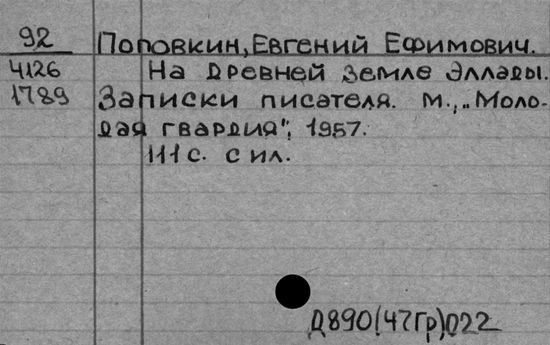 92 Поповкин, Евгений Ефимович.
4126 На древней земле Эллады.
1789 Записки писателя. М., „Моло-
дая гвардия", 1957.
111 с. с ил.
Д890(47Гр)022